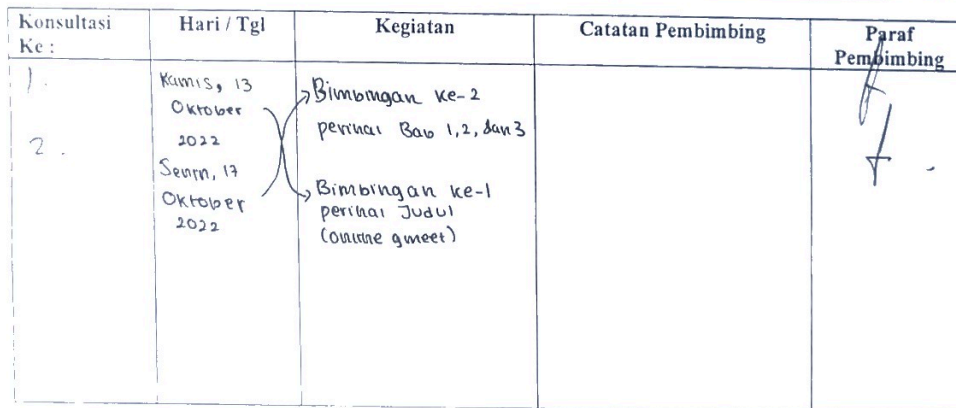 Konsultasi Ke :
Hari / Tgl
Kegiatan
Catatan Pembimbing
Paraf Pembimbing
1.
Kamis, 13
Oktober
2022
Bimbingan ke-2
perihal Bab 1, 2, dan 3
2.
Senin, 17
Oktober
2022
Bimbingan ke-1
perihal Judul
(online gmeet)